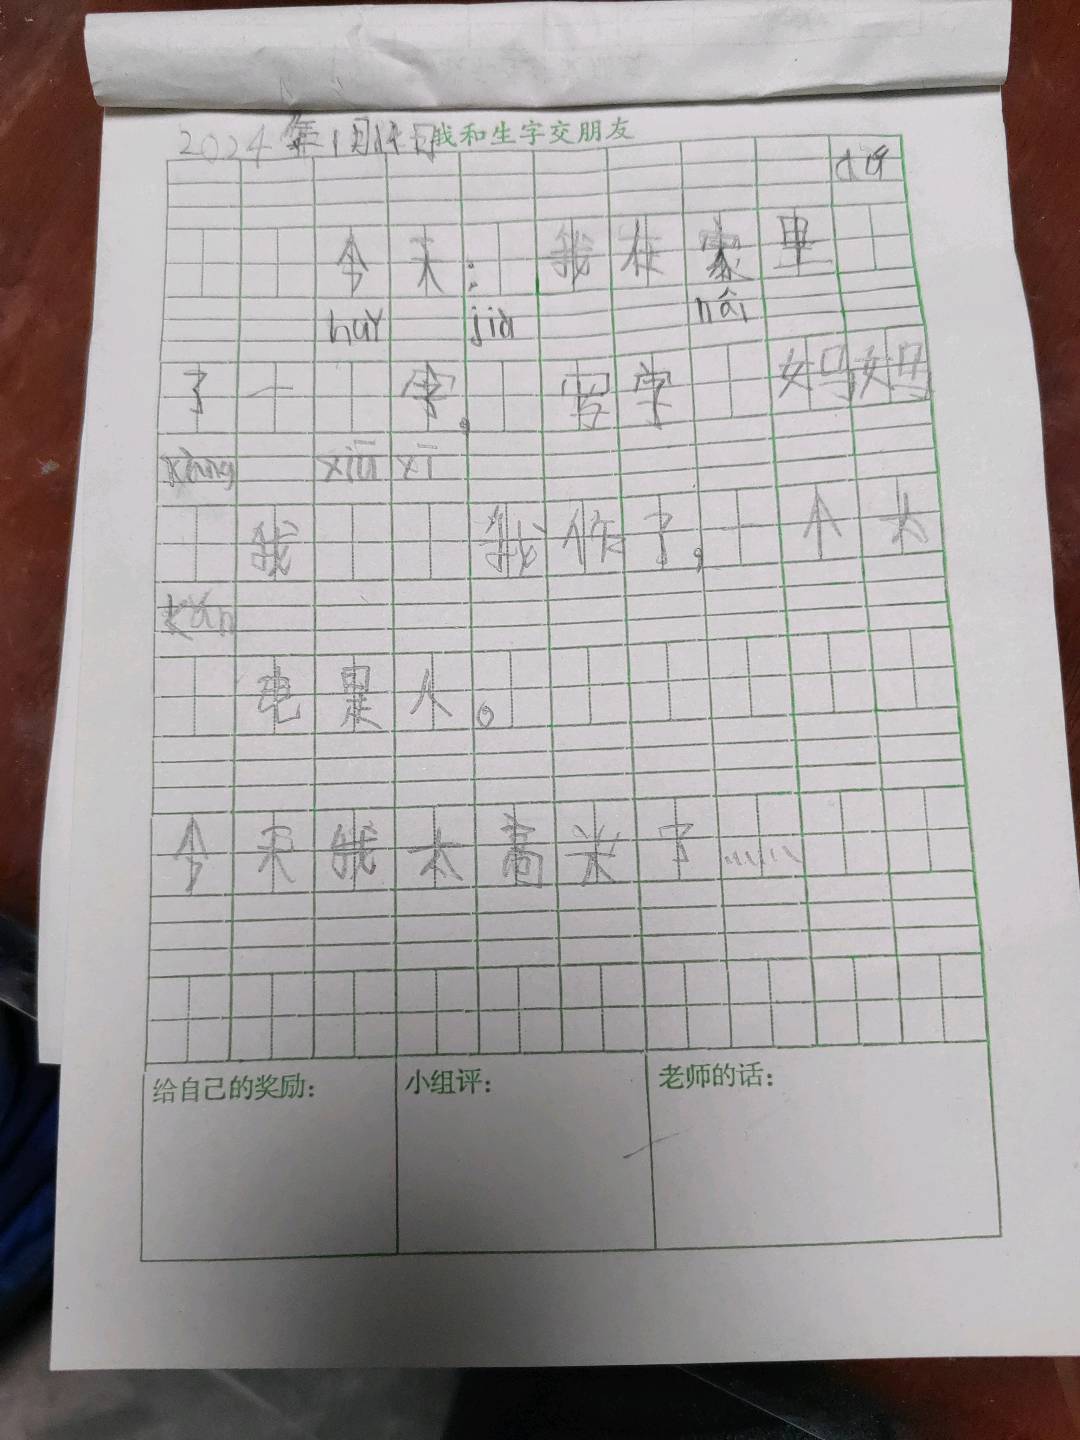 2024年1月14日 我和生字交朋友
今天: 我在家里
huì jià nǎi
了一 字, 写字 妈妈
xiū xī
我 我作了,一个大
kàn
电是人。
今天我太高米了……
给自己的奖励: 小组评: 老师的话: